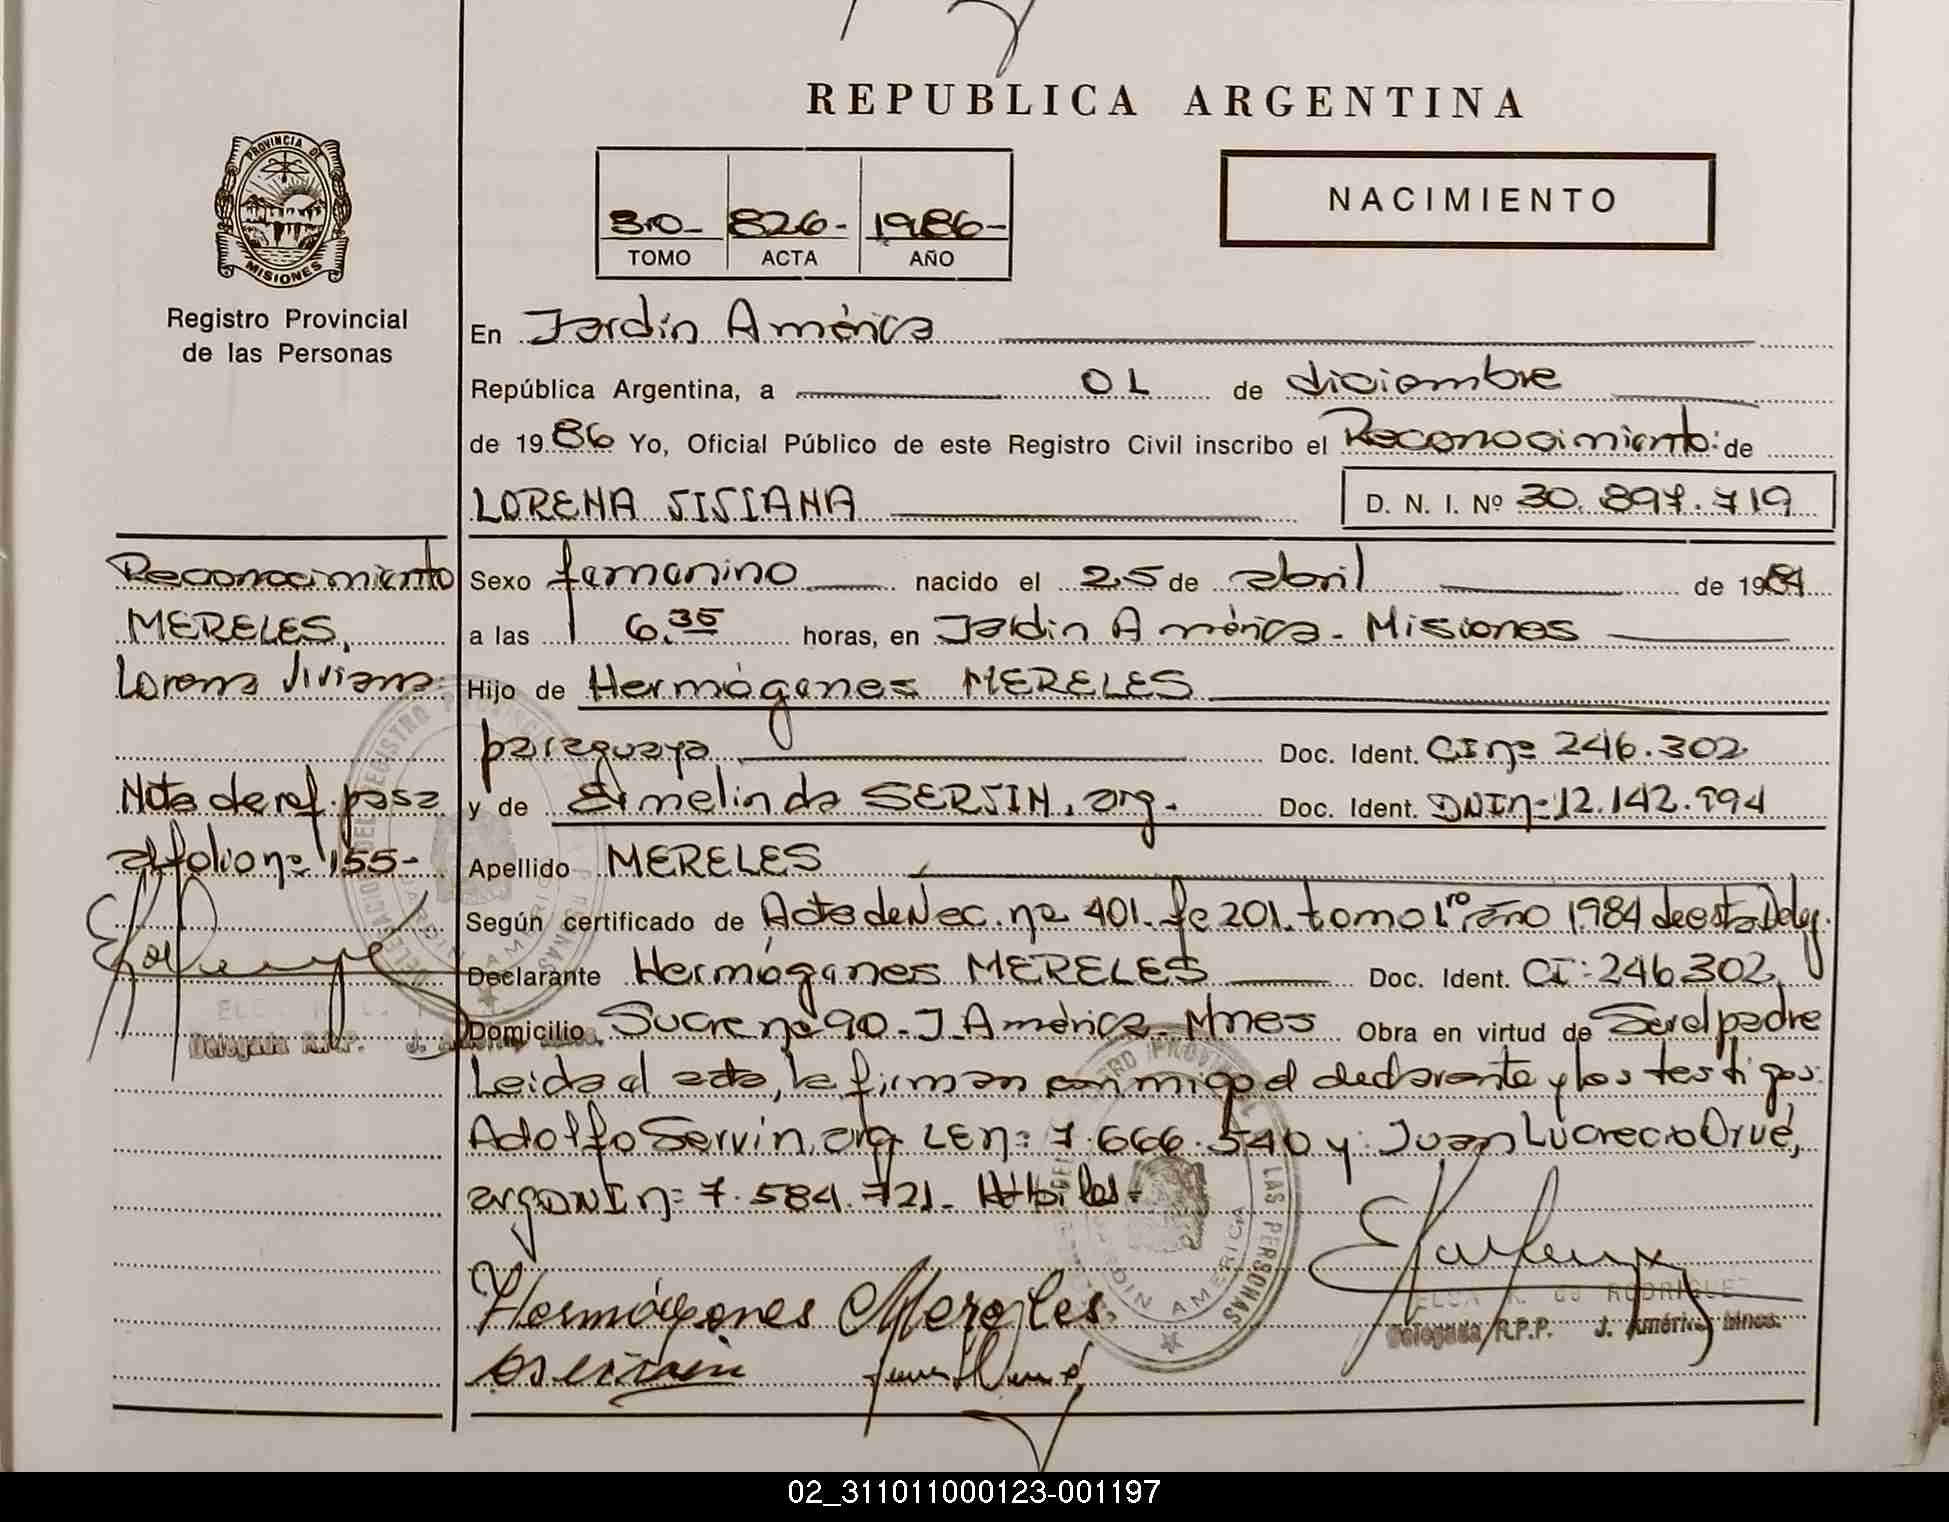 REPUBLICA ARGENTINA
PROVINCIA DE
MISIONES
Registro Provincial
de las Personas
3ro- 826- 1986-
TOMO ACTA AÑO
NACIMIENTO
En Jardín América
República Argentina, a 01 de diciembre
de 1986 Yo, Oficial Público de este Registro Civil inscribo el Reconocimiento: de
LORENA VIVIANA D. N. I. Nº 30.897.719
Reconocimiento
MERELES,
Lorena Viviana
Nota de ref. pasa
al folio nº 155-
Sexo femenino nacido el 25 de abril de 1984
a las 6,35 horas, en Jardín América - Misiones
Hijo de Hermógenes MERELES
paraguaya Doc. Ident. CI nº 246.302
y de Ermelinda SERVIN, arg. Doc. Ident. DNI nº 12.142.994
Apellido MERELES
Según certificado de Acta de Nac. nº 401. fº 201. tomo 1ro año 1984 de esta Deleg.
Declarante Hermógenes MERELES Doc. Ident. CI: 246.302
Domicilio Sucre nº 90 - J. América - Mnes Obra en virtud de Ser el padre
Leida el acta, la firman conmigo el declarante y los testigos:
Adolfo Servín, arg. LE nº 7.666.540 y Juan Lucrecio Orué,
arg DNI nº 7.584.721 - Hábiles -
Hermógenes Mereles
Delegada R.P.P. J. América Mnes.
RODRIGUEZ
Delegada R.P.P. J. América Mnes.
02_311011000123-001197